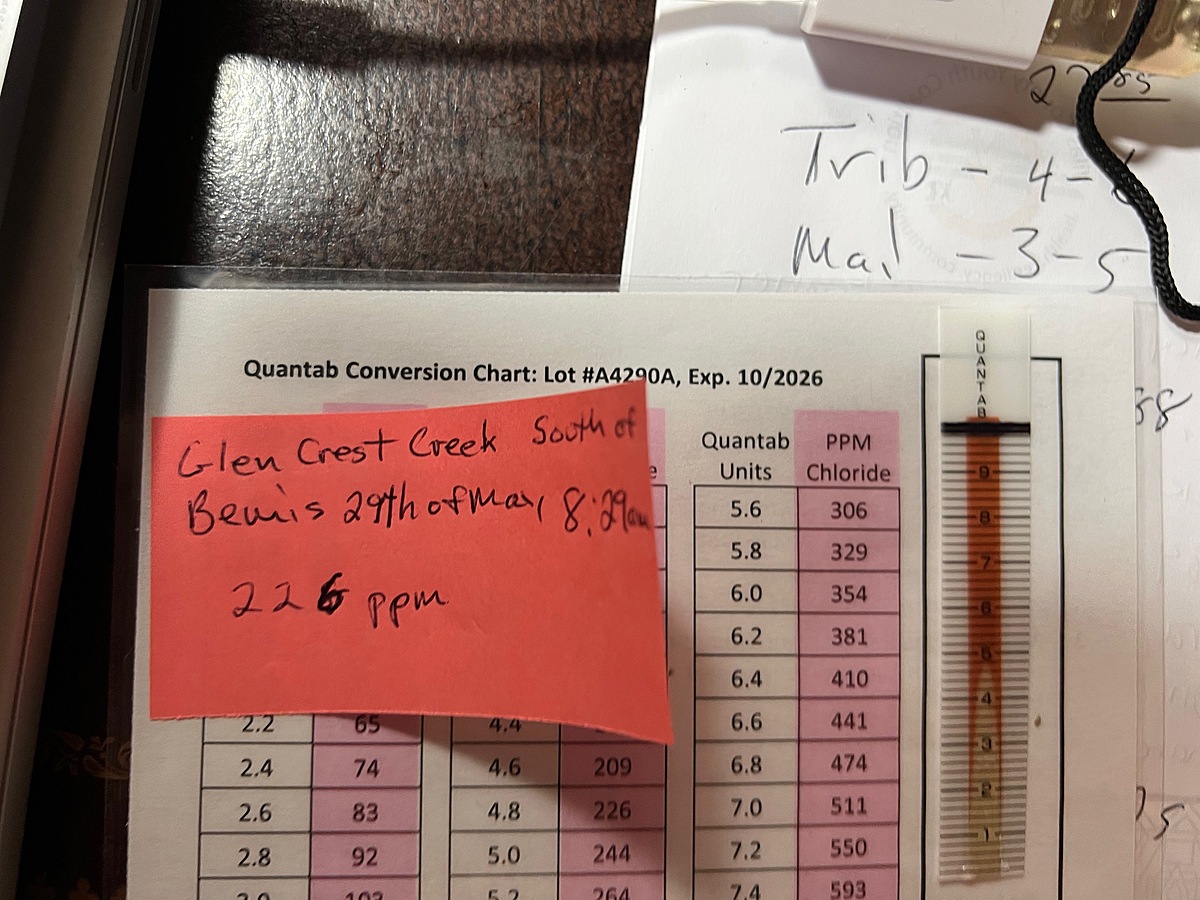 Trib - 4-
Mal - 3-5
Quantab Conversion Chart: Lot #A4290A, Exp. 10/2026
Glen Crest Creek South of
Bemis 29th of May 8:29am
226 ppm
Quantab Units PPM Chloride
5.6 306
5.8 329
6.0 354
6.2 381
6.4 410
2.2 65 4.4 6.6 441
2.4 74 4.6 209 6.8 474
2.6 83 4.8 226 7.0 511
2.8 92 5.0 244 7.2 550
5.2 264 7.4 593
QUANTAB
9
8
7
6
5
4
3
2
1